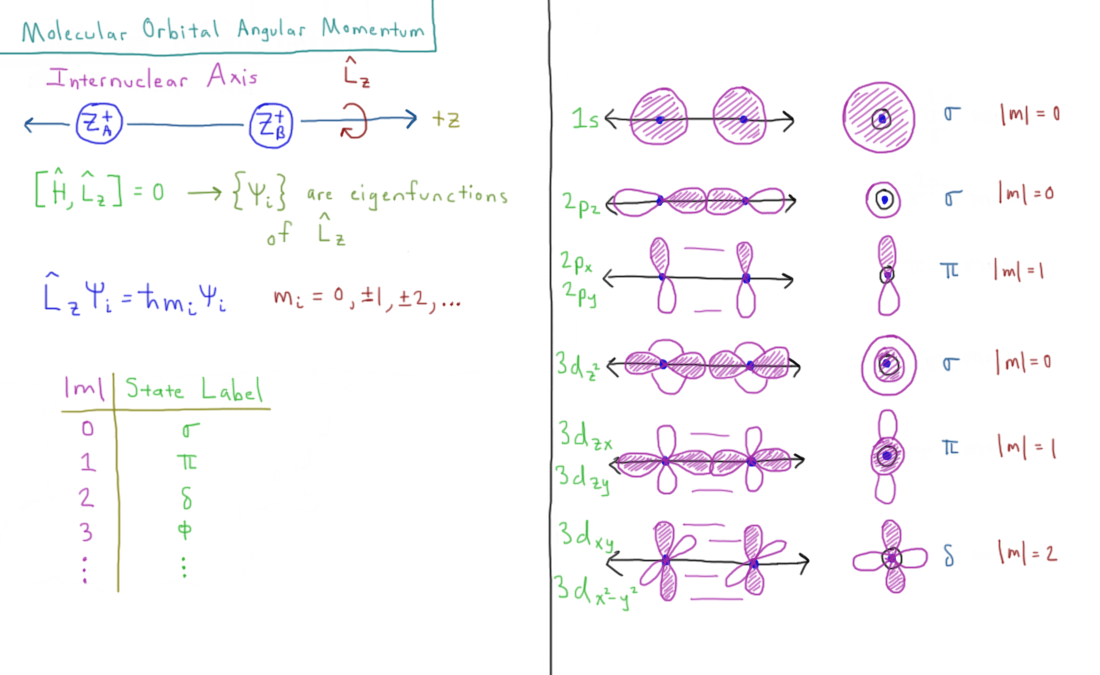 Molecular Orbital Angular Momentum
Internuclear Axis
L̂z
Z_A^+ Z_B^+ +z
[Ĥ, L̂z] = 0 → {Ψi} are eigenfunctions
of L̂z
L̂z Ψi = ħ mi Ψi mi = 0, ±1, ±2, ...
|m| State Label
0 σ
1 π
2 δ
3 φ
⋮ ⋮
1s σ |m| = 0
2pz σ |m| = 0
2px
2py
π |m| = 1
3dz² σ |m| = 0
3dzx
3dzy
π |m| = 1
3dxy
3dx²-y²
δ |m| = 2